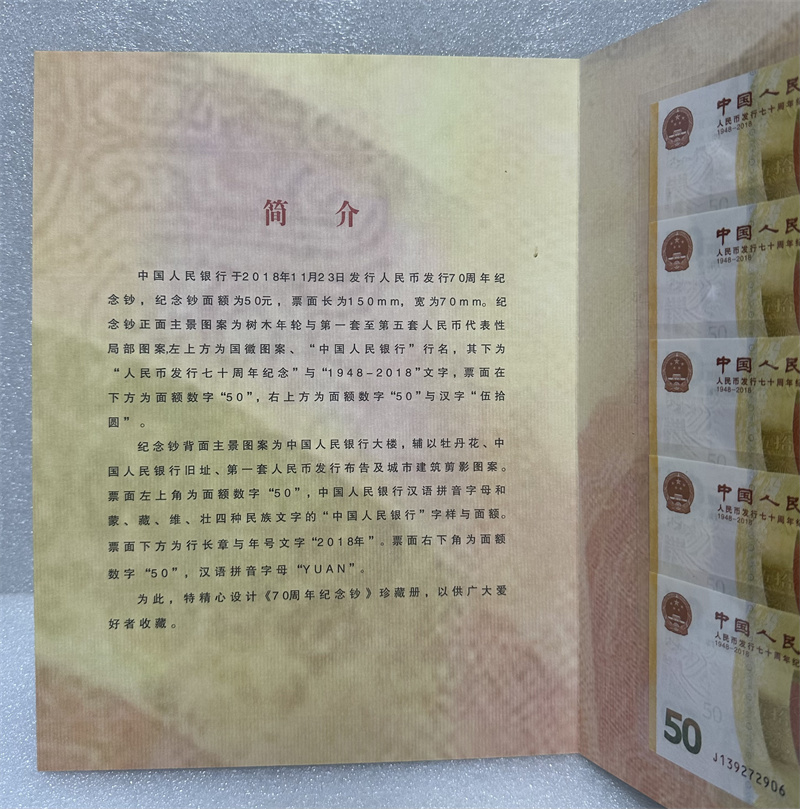 简 介
中国人民银行于2018年11月23日发行人民币发行70周年纪
念钞，纪念钞面额为50元，票面长为150mm，宽为70mm。纪
念钞正面主景图案为树木年轮与第一套至第五套人民币代表性
局部图案,左上方为国徽图案、“中国人民银行”行名，其下为
“人民币发行七十周年纪念”与“1948-2018”文字，票面在
下方为面额数字“50”，右上方为面额数字“50”与汉字“伍拾
圆”。
纪念钞背面主景图案为中国人民银行大楼，辅以牡丹花、中
国人民银行旧址、第一套人民币发行布告及城市建筑剪影图案。
票面左上角为面额数字“50”，中国人民银行汉语拼音字母和
蒙、藏、维、壮四种民族文字的“中国人民银行”字样与面额。
票面下方为行长章与年号文字“2018年”。票面右下角为面额
数字“50”，汉语拼音字母“YUAN”。
为此，特精心设计《70周年纪念钞》珍藏册，以供广大爱
好者收藏。
中国人民
人民币发行七十周年纪
1948-2018
50
中国人民
人民币发行七十周年纪
1948-2018
50
中国人民
人民币发行七十周年纪
1948-2018
50
中国人民
人民币发行七十周年纪
1948-2018
50
中国人民
人民币发行七十周年纪
1948-2018
50
50
J139272906